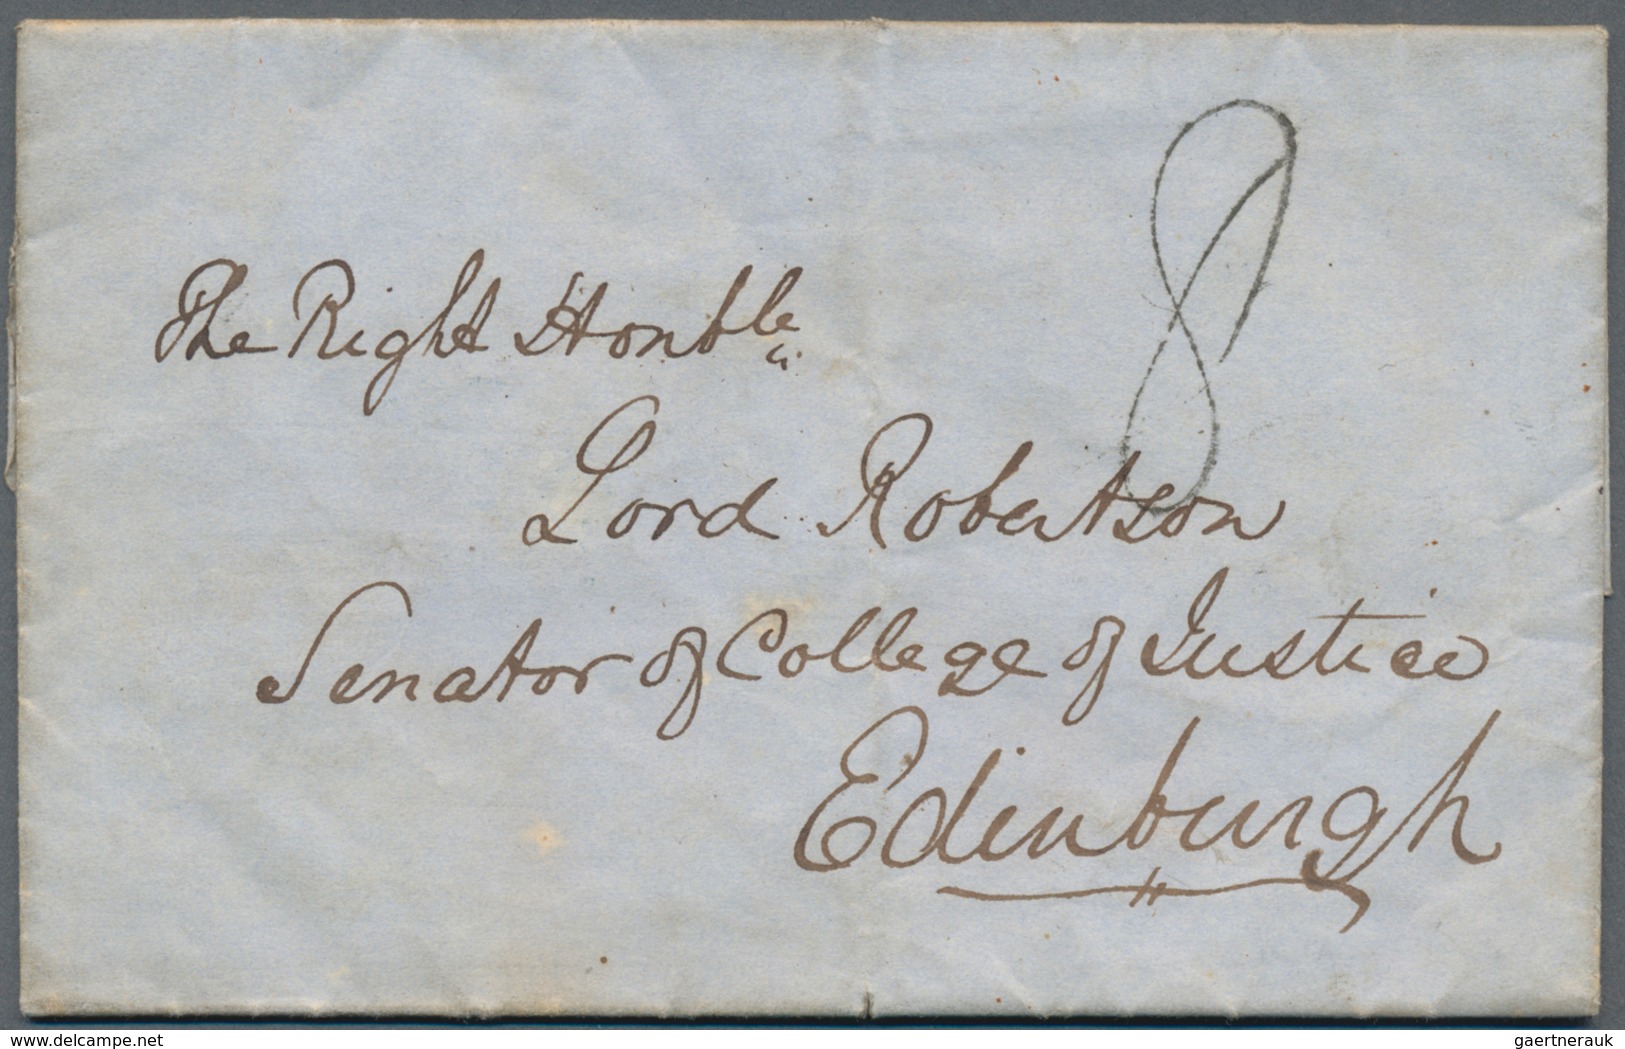 8
The Right Honble
Lord Robertson
Senator of College of Justice
Edinburgh
www.delcampe.net
gaertnerauk